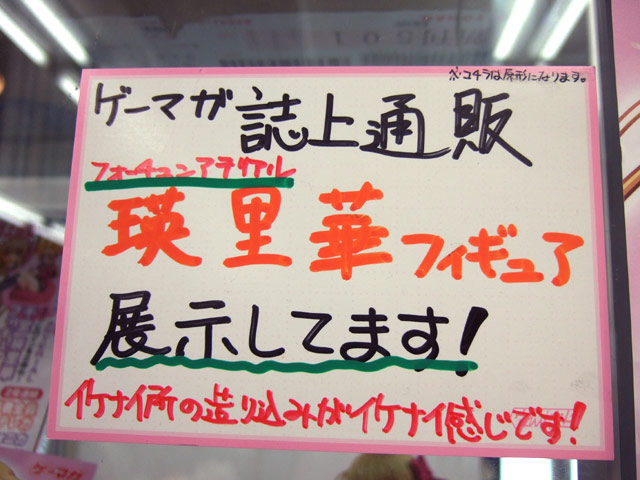 ※コチラは原形になります。
ゲーマガ 誌上通販
フォーチュンアテリアル
瑛里華フィギュア
展示してます!
イケナイ所の造り込みがイケナイ感じです!
ゲーマガ